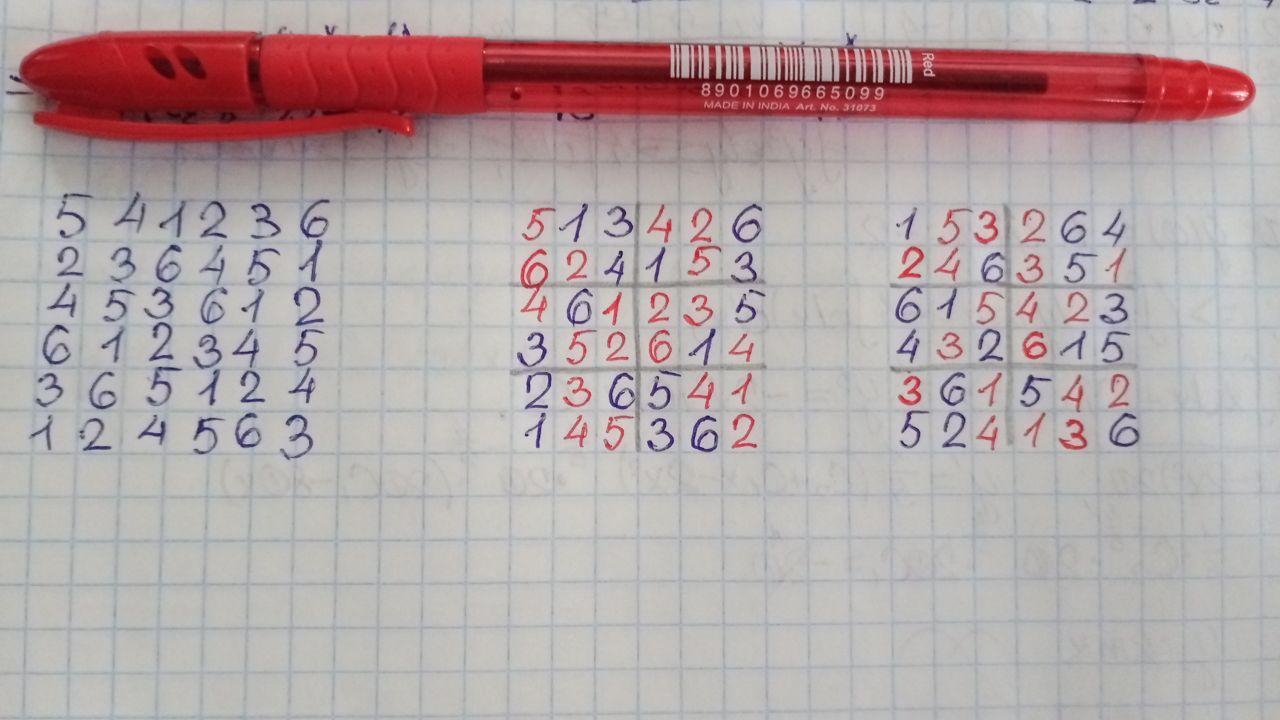 Red
8901069665099
MADE IN INDIA Art. No. 31073
5 4 1 2 3 6
2 3 6 4 5 1
4 5 3 6 1 2
6 1 2 3 4 5
3 6 5 1 2 4
1 2 4 5 6 3
5 1 3 4 2 6
6 2 4 1 5 3
4 6 1 2 3 5
3 5 2 6 1 4
2 3 6 5 4 1
1 4 5 3 6 2
1 5 3 2 6 4
2 4 6 3 5 1
6 1 5 4 2 3
4 3 2 6 1 5
3 6 1 5 4 2
5 2 4 1 3 6